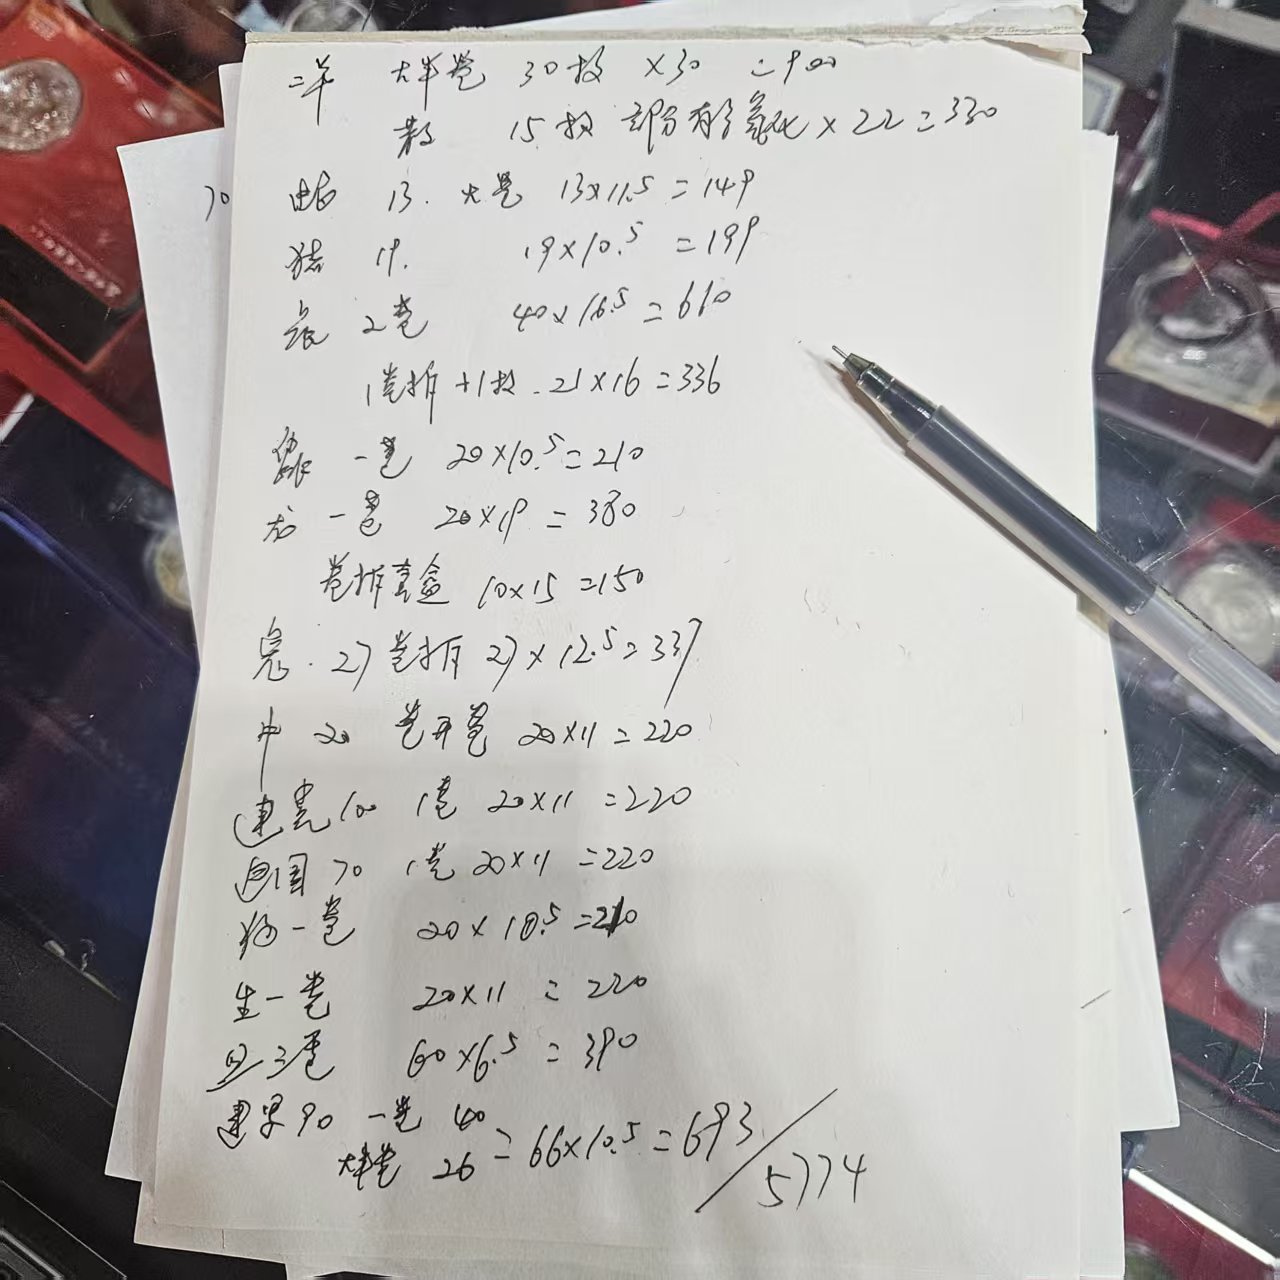 二羊 大半卷 30枚 ×30 =900
散 15枚 部分有氧化 ×22=330
70
13. 大卷 13×11.5=149
猪 19. 19×10.5=199
2卷 40×16.5=660
1卷拆+1枚 21×16=336
猴 一卷 20×10.5=210
龙 一卷 20×19=380
卷拆套盒 10×15=150
兔. 27 卷拆 27×12.5=337
牛 20 卷开卷 20×11=220
建党100 1卷 20×11=220
建国70 1卷 20×11=220
狗一卷 20×10.5=210
一卷 20×11=220
三卷 60×6.5=390
建军90 一卷 40
大半卷 26 =66×10.5=693
5774